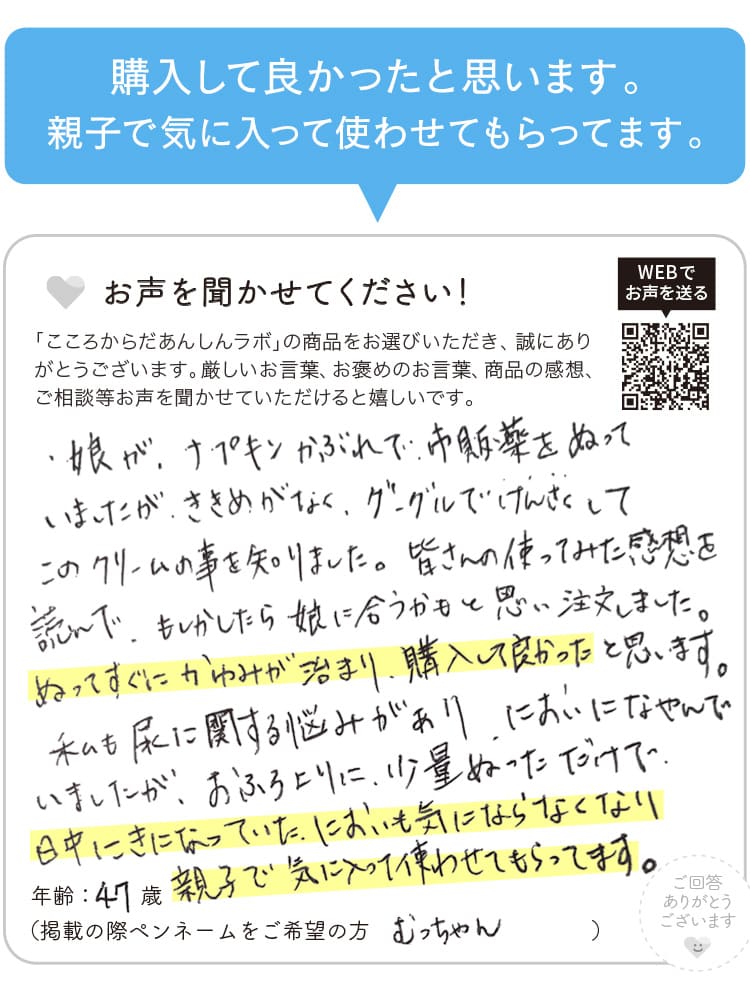 購入して良かったと思います。
親子で気に入って使わせてもらってます。
お声を聞かせてください！
WEBで
お声を送る
「こころからだあんしんラボ」の商品をお選びいただき、誠にあり
がとうございます。厳しいお言葉、お褒めのお言葉、商品の感想、
ご相談等お声を聞かせていただけると嬉しいです。
・娘が、ナプキンかぶれで、市販薬をぬって
いましたが、ききめがなく、グーグルでけんさくして
このクリームの事を知りました。皆さんの使ってみた感想を
読んで、もしかしたら娘に合うかもと思い注文しました。
ぬってすぐにかゆみが治まり、購入して良かったと思います。
私も尿に関する悩みがあり、においになやんで
いましたが、おふろ上りに、少量ぬっただけで、
日中にきになっていた、においも気にならなくなり
親子で気に入って使わせてもらってます。
年齢：47歳
（掲載の際ペンネームをご希望の方　むっちゃん　）
ご回答
ありがとう
ございます